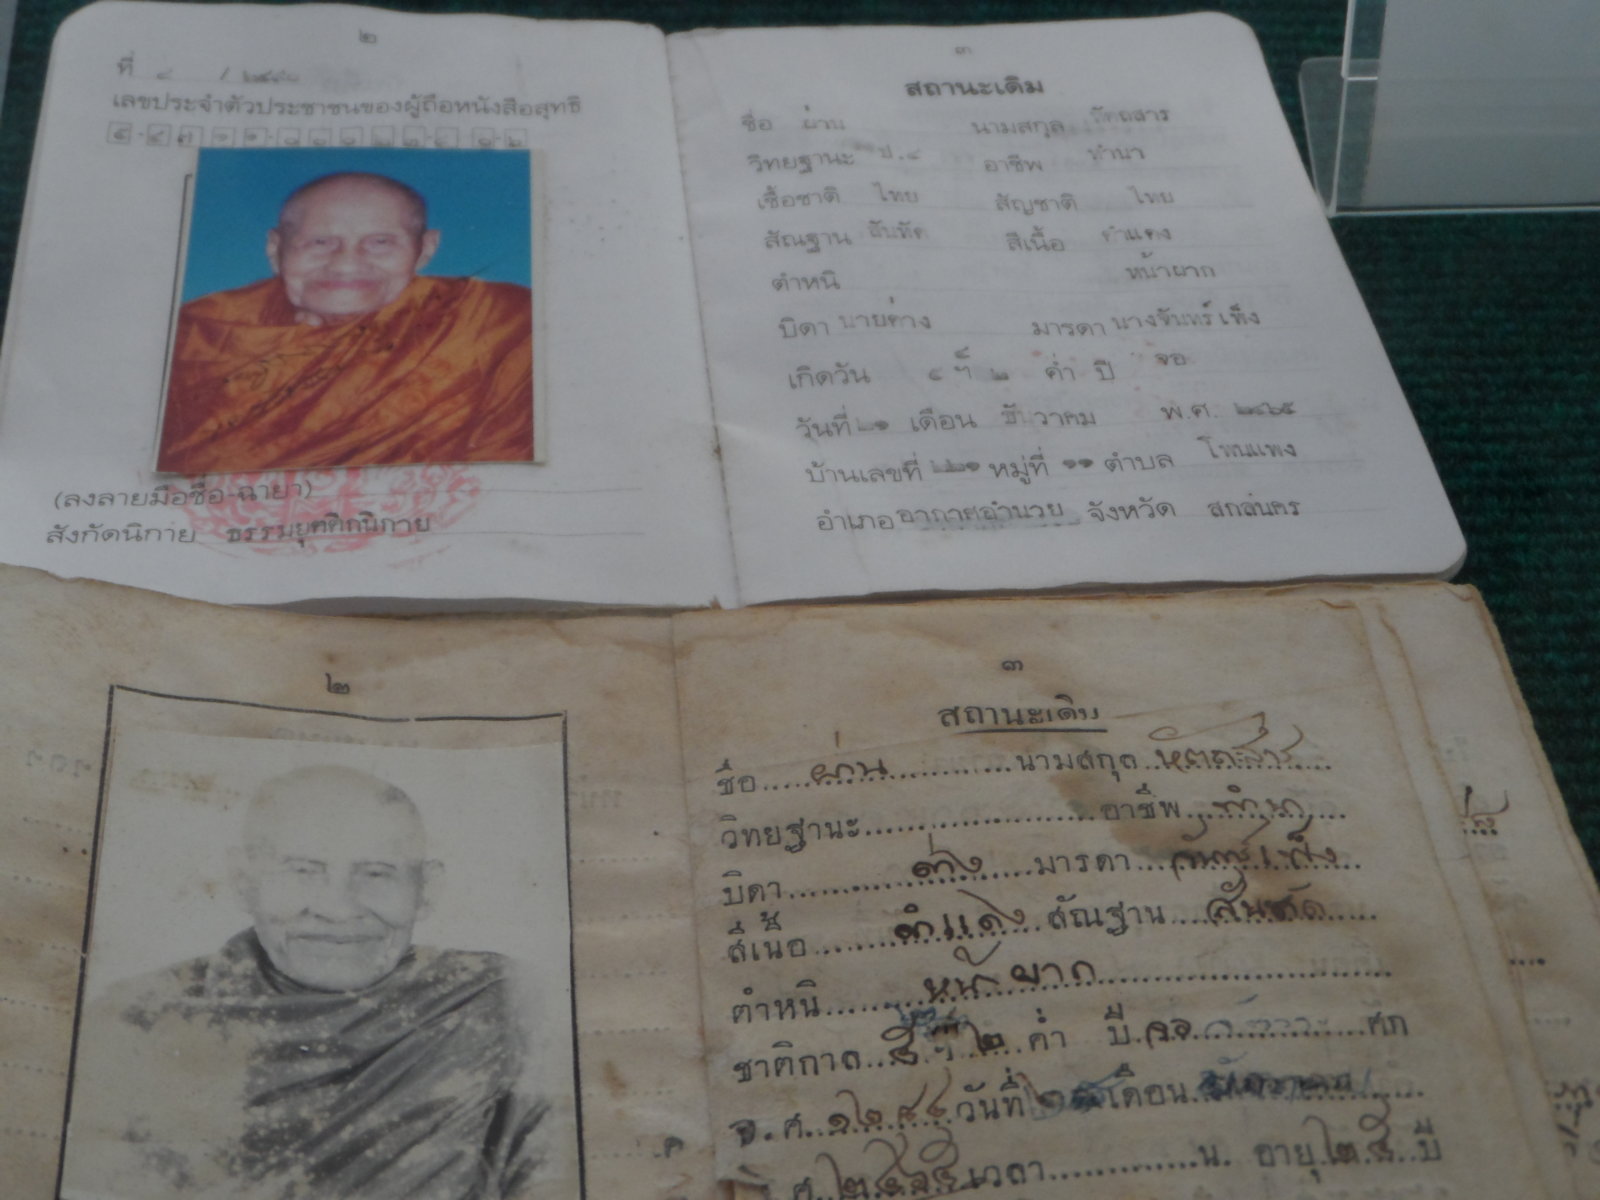 ๒
ที่ ๔ /
เลขประจำตัวประชาชนของผู้ถือหนังสือสุทธิ
(ลงลายมือชื่อ-ฉายา)
สังกัดนิกาย ธรรมยุตติกนิกาย
๓
สถานะเดิม
ชื่อ ผ่าน นามสกุล หัตถสาร
วิทยฐานะ ป.๔ อาชีพ ทำนา
เชื้อชาติ ไทย สัญชาติ ไทย
สัณฐาน สันทัด สีเนื้อ ดำแดง
ตำหนิ หน้าผาก
บิดา นายด่าง มารดา นางจันทร์เพ็ง
เกิดวัน ๕ ฯ ๒ ค่ำ ปี จอ
วันที่ ๒๑ เดือน ธันวาคม พ.ศ. ๒๔๖๕
บ้านเลขที่ หมู่ที่ ๑๑ ตำบล โพนแพง
อำเภอ อากาศอำนวย จังหวัด สกลนคร
๒
๓
สถานะเดิม
ชื่อ ผ่าน นามสกุล หัตถสาร
วิทยฐานะ อาชีพ ทำนา
บิดา ด่าง มารดา จันทร์เพ็ง
สีเนื้อ ดำแดง สัณฐาน สันทัด
ตำหนิ หน้าผาก
ชาติกาล ๕ ฯ ๒ ค่ำ ปี จอ ศก
จ.ศ. ๑๒๘๔ วันที่ เดือน ธันวาคม
ศ. ๒๔๖๕ เวลา น. อายุ ๒๕ ปี